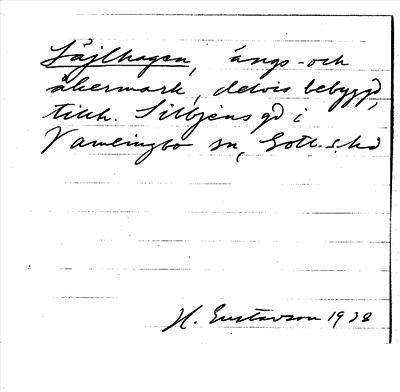 Säjlhagen, ängs- och
åkermark, delvis bebyggd,
tillh. Sibbjens gd i
Vamlingbo sn, Gotl. s. hd
H. Gustavson 1928